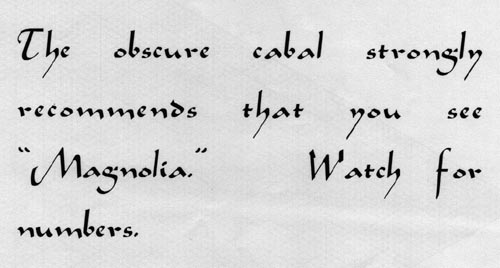 The obscure cabal strongly
recommends that you see
"Magnolia." Watch for
numbers.